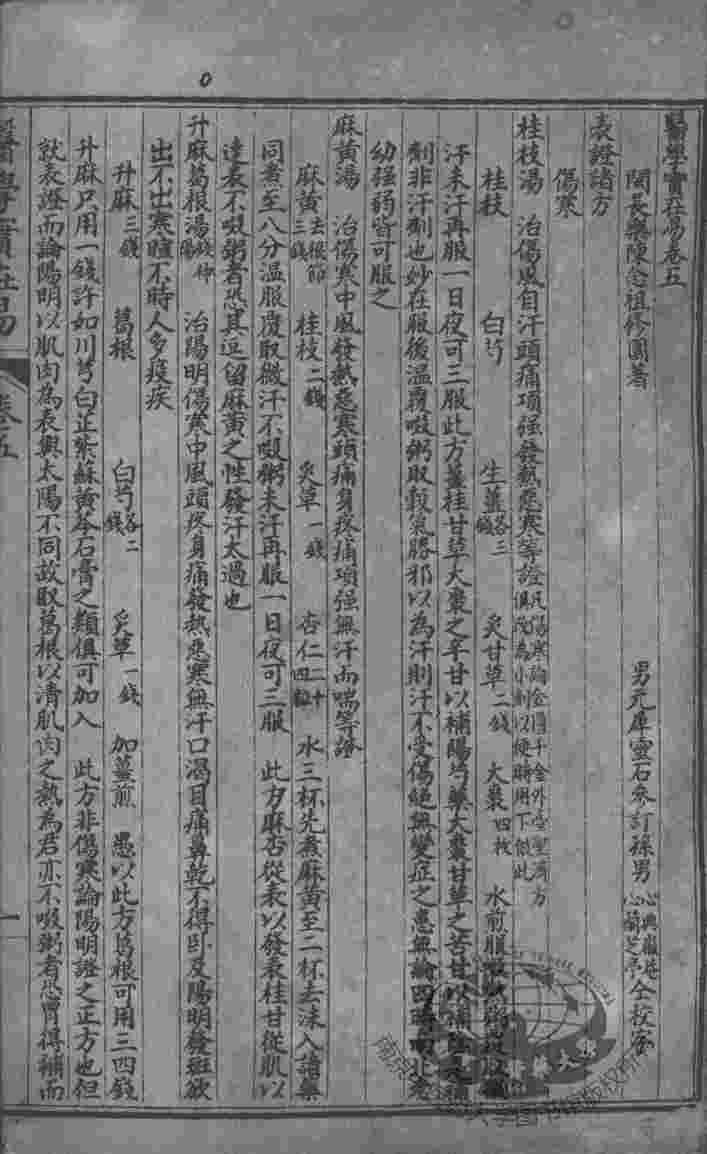 醫學實在易卷五
閩長樂陳念祖修園著　男元犀靈石參訂孫男心典徽菴心蘭芝亭仝校字
表證諸方
傷寒
桂枝湯　治傷風自汗頭痛項强發熱惡寒等證凡傷寒論金匱千金外臺聖濟方俱改為小劑以便時用下倣此
桂枝　白芍　生薑各三錢　炙甘草二錢　大棗四枚　水煎服
汗未汗再服一日夜可三服此方薑桂甘草大棗之辛甘以補陽芍藥大棗甘草之苦甘以補陰
劑非汗劑也妙在服後溫覆啜粥取穀氣勝邪以為汗則汗不受傷絕無變症之患無論四時南北老
幼强弱皆可服之
麻黃湯　治傷寒中風發熱惡寒頭痛身疼痛項强無汗而喘等證
麻黃去根節三錢　桂枝二錢　炙草一錢　杏仁二十四粒　水三杯先煮麻黃至二杯去沫入諸藥
同煮至八分溫服覆取微汗不啜粥未汗再服一日夜可三服　此方麻杏從表以發表桂甘從肌以
達表不啜粥者恐其逗留麻黃之性發汗太過也
升麻葛根湯錢仲陽　治陽明傷寒中風頭疼身痛發熱惡寒無汗口渴目痛鼻乾不得臥及陽明發斑欲
出不出寒暄不時人多疫疾
升麻三錢　葛根　白芍各二錢　炙草一錢　加薑煎　愚以此方葛根可用三四錢
升麻只用一錢許如川芎白芷紫蘇黃芩石膏之類俱可加入　此方非傷寒論陽明證之正方也但
就表證而論陽明以肌肉為表與太陽不同故取葛根以清肌肉之熱為君亦不啜粥者恐胃得補而
醫學實在易　卷五　一